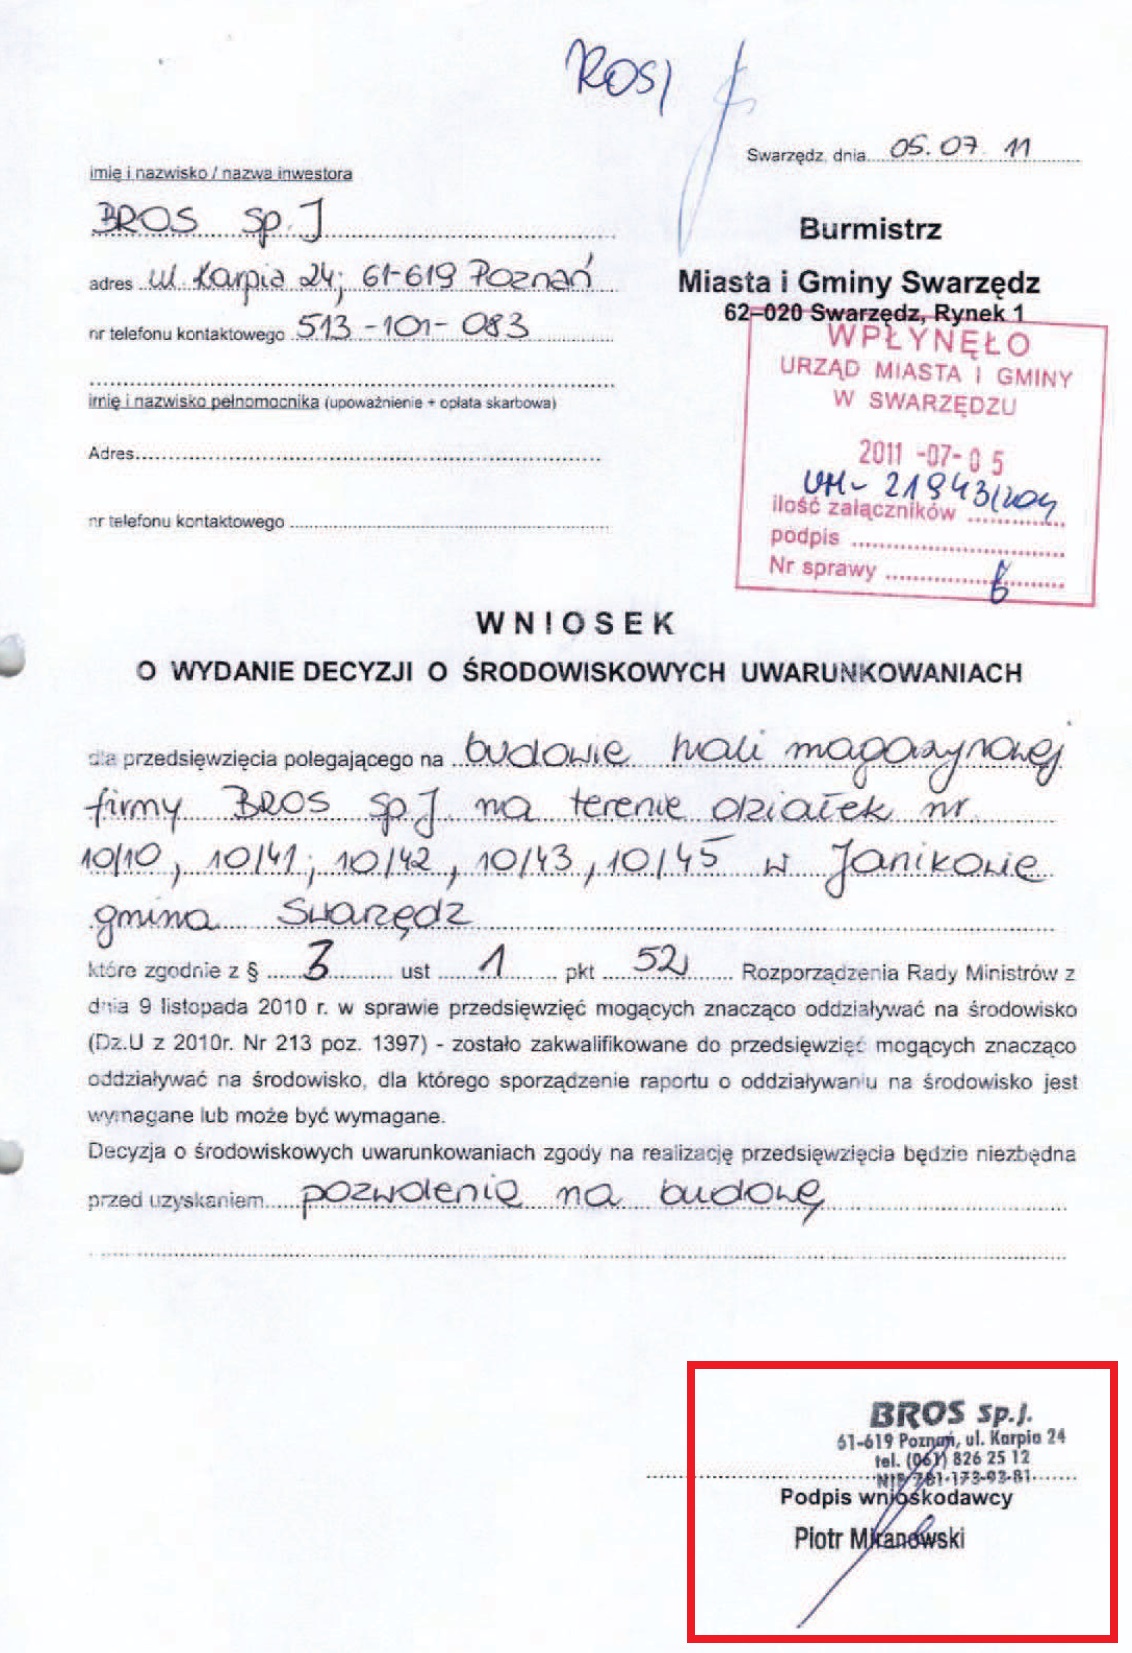 ROS)
Swarzędz, dnia 05.07.11
imię i nazwisko / nazwa inwestora
BROS Sp.J
adres ul. Karpia 24; 61-619 Poznań
nr telefonu kontaktowego 513-101-083
imię i nazwisko pełnomocnika (upoważnienie + opłata skarbowa)
Adres
nr telefonu kontaktowego
Burmistrz
Miasta i Gminy Swarzędz
62–020 Swarzędz, Rynek 1
WPŁYNĘŁO
URZĄD MIASTA I GMINY
W SWARZĘDZU
2011-07-05
ilość załączników
podpis
Nr sprawy
WNIOSEK
O WYDANIE DECYZJI O ŚRODOWISKOWYCH UWARUNKOWANIACH
dla przedsięwzięcia polegającego na budowie hali magazynowej
firmy BROS Sp.J. na terenie działek nr
10/10, 10/41; 10/42, 10/43, 10/45 w Janikowie
gmina Swarzędz
które zgodnie z § 3 ust 1 pkt 52 Rozporządzenia Rady Ministrów z
dnia 9 listopada 2010 r. w sprawie przedsięwzięć mogących znacząco oddziaływać na środowisko
(Dz.U z 2010r. Nr 213 poz. 1397) - zostało zakwalifikowane do przedsięwzięć mogących znacząco
oddziaływać na środowisko, dla którego sporządzenie raportu o oddziaływaniu na środowisko jest
wymagane lub może być wymagane.
Decyzja o środowiskowych uwarunkowaniach zgody na realizację przedsięwzięcia będzie niezbędna
przed uzyskaniem pozwolenie na budowę
BROS Sp.J.
61-619 Poznań, ul. Karpia 24
tel. (061) 826 25 12
NIP 781-173-93-81
Podpis wnioskodawcy
Piotr Miranowski